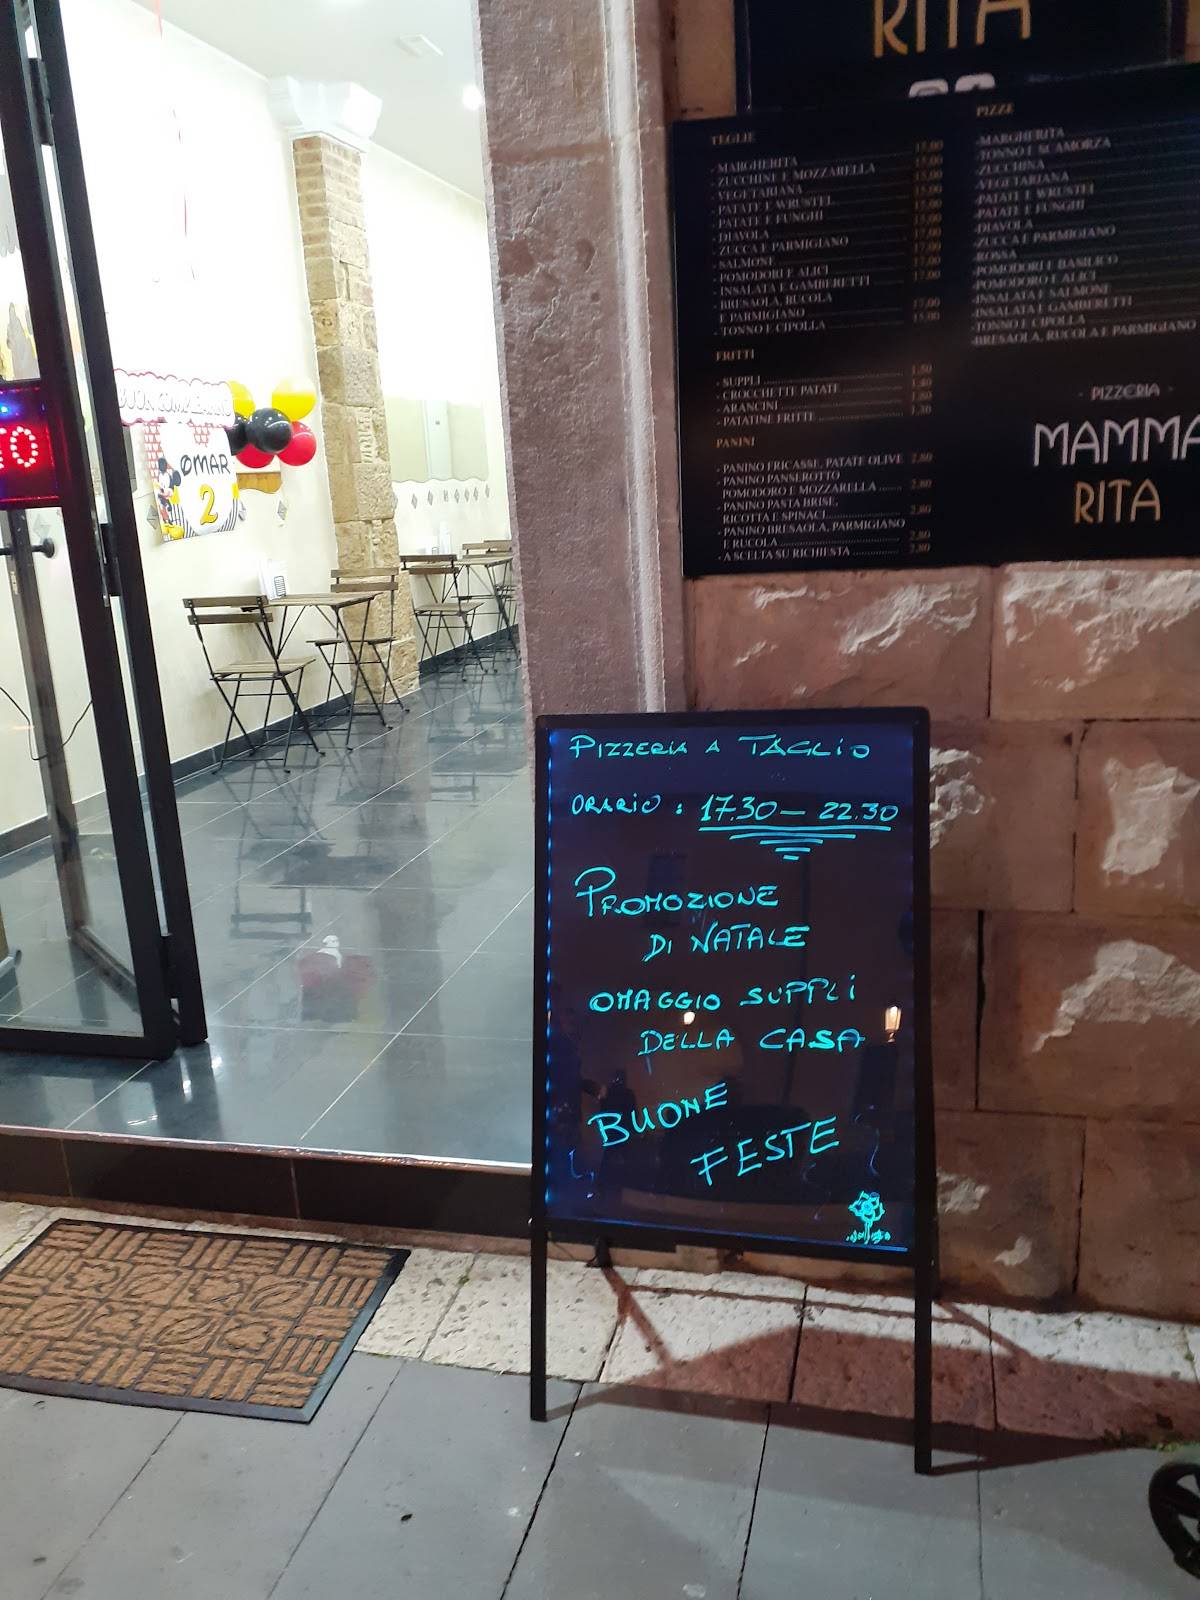 RITA
TEGLIE
- MARGHERITA 15,00
- ZUCCHINE E MOZZARELLA 15,00
- VEGETARIANA 15,00
- PATATE E WRUSTEL 15,00
- PATATE E FUNGHI 15,00
- DIAVOLA
- ZUCCA E PARMIGIANO
- SALMONE
- POMODORI E ALICI
- INSALATA E GAMBERETTI 17,00
- BRESAOLA, RUCOLA
E PARMIGIANO 17,00
- TONNO E CIPOLLA 15,00
FRITTI
- SUPPLI 1,50
- CROCCHETTE PATATE
- ARANCINI
- PATATINE FRITTE
PANINI
- PANINO FRICASSE, PATATE OLIVE 2,80
- PANINO PANSEROTTO
POMODORO E MOZZARELLA 2,80
- PANINO PASTA BRISE,
RICOTTA E SPINACI 2,80
- PANINO BRESAOLA, PARMIGIANO
E RUCOLA 2,80
- A SCELTA SU RICHIESTA 2,80
PIZZE
-MARGHERITA
-TONNO E SCAMORZA
-ZUCCHINA
-VEGETARIANA
-PATATE E WRUSTEL
-PATATE E FUNGHI
-DIAVOLA
-ZUCCA E PARMIGIANO
-ROSSA
-POMODORI E BASILICO
-POMODORI E ALICI
-INSALATA E SALMONE
-INSALATA E GAMBERETTI
-TONNO E CIPOLLA
-BRESAOLA, RUCOLA E PARMIGIANO
- PIZZERIA -
MAMMA
RITA
BUON COMPLEANNO
OMAR
2
TO
PIZZERIA A TAGLIO
ORARIO : 17.30 – 22.30
PROMOZIONE
DI NATALE
OMAGGIO SUPPLI
DELLA CASA
BUONE
FESTE